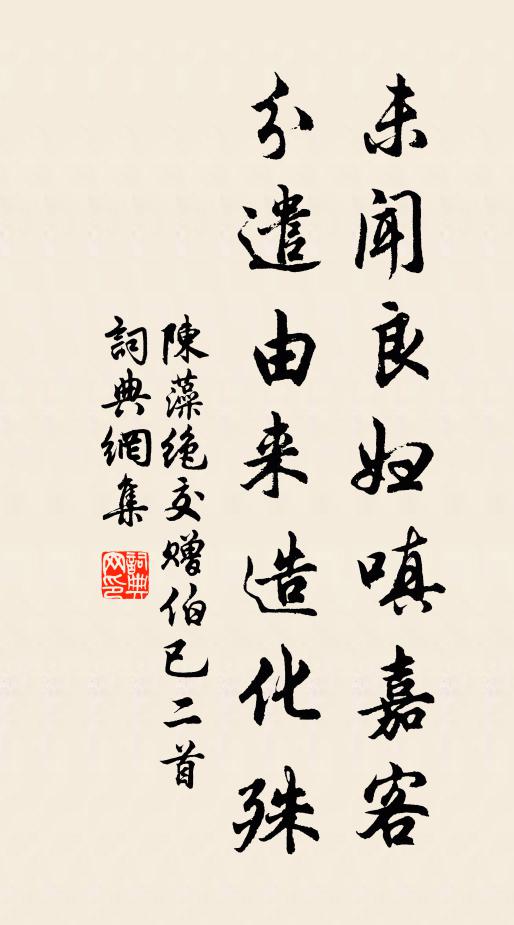 未闻良妇嗔嘉客
分遣由来造化殊
陳藻绝交赠伯已二首
詞典網集
詞典网印